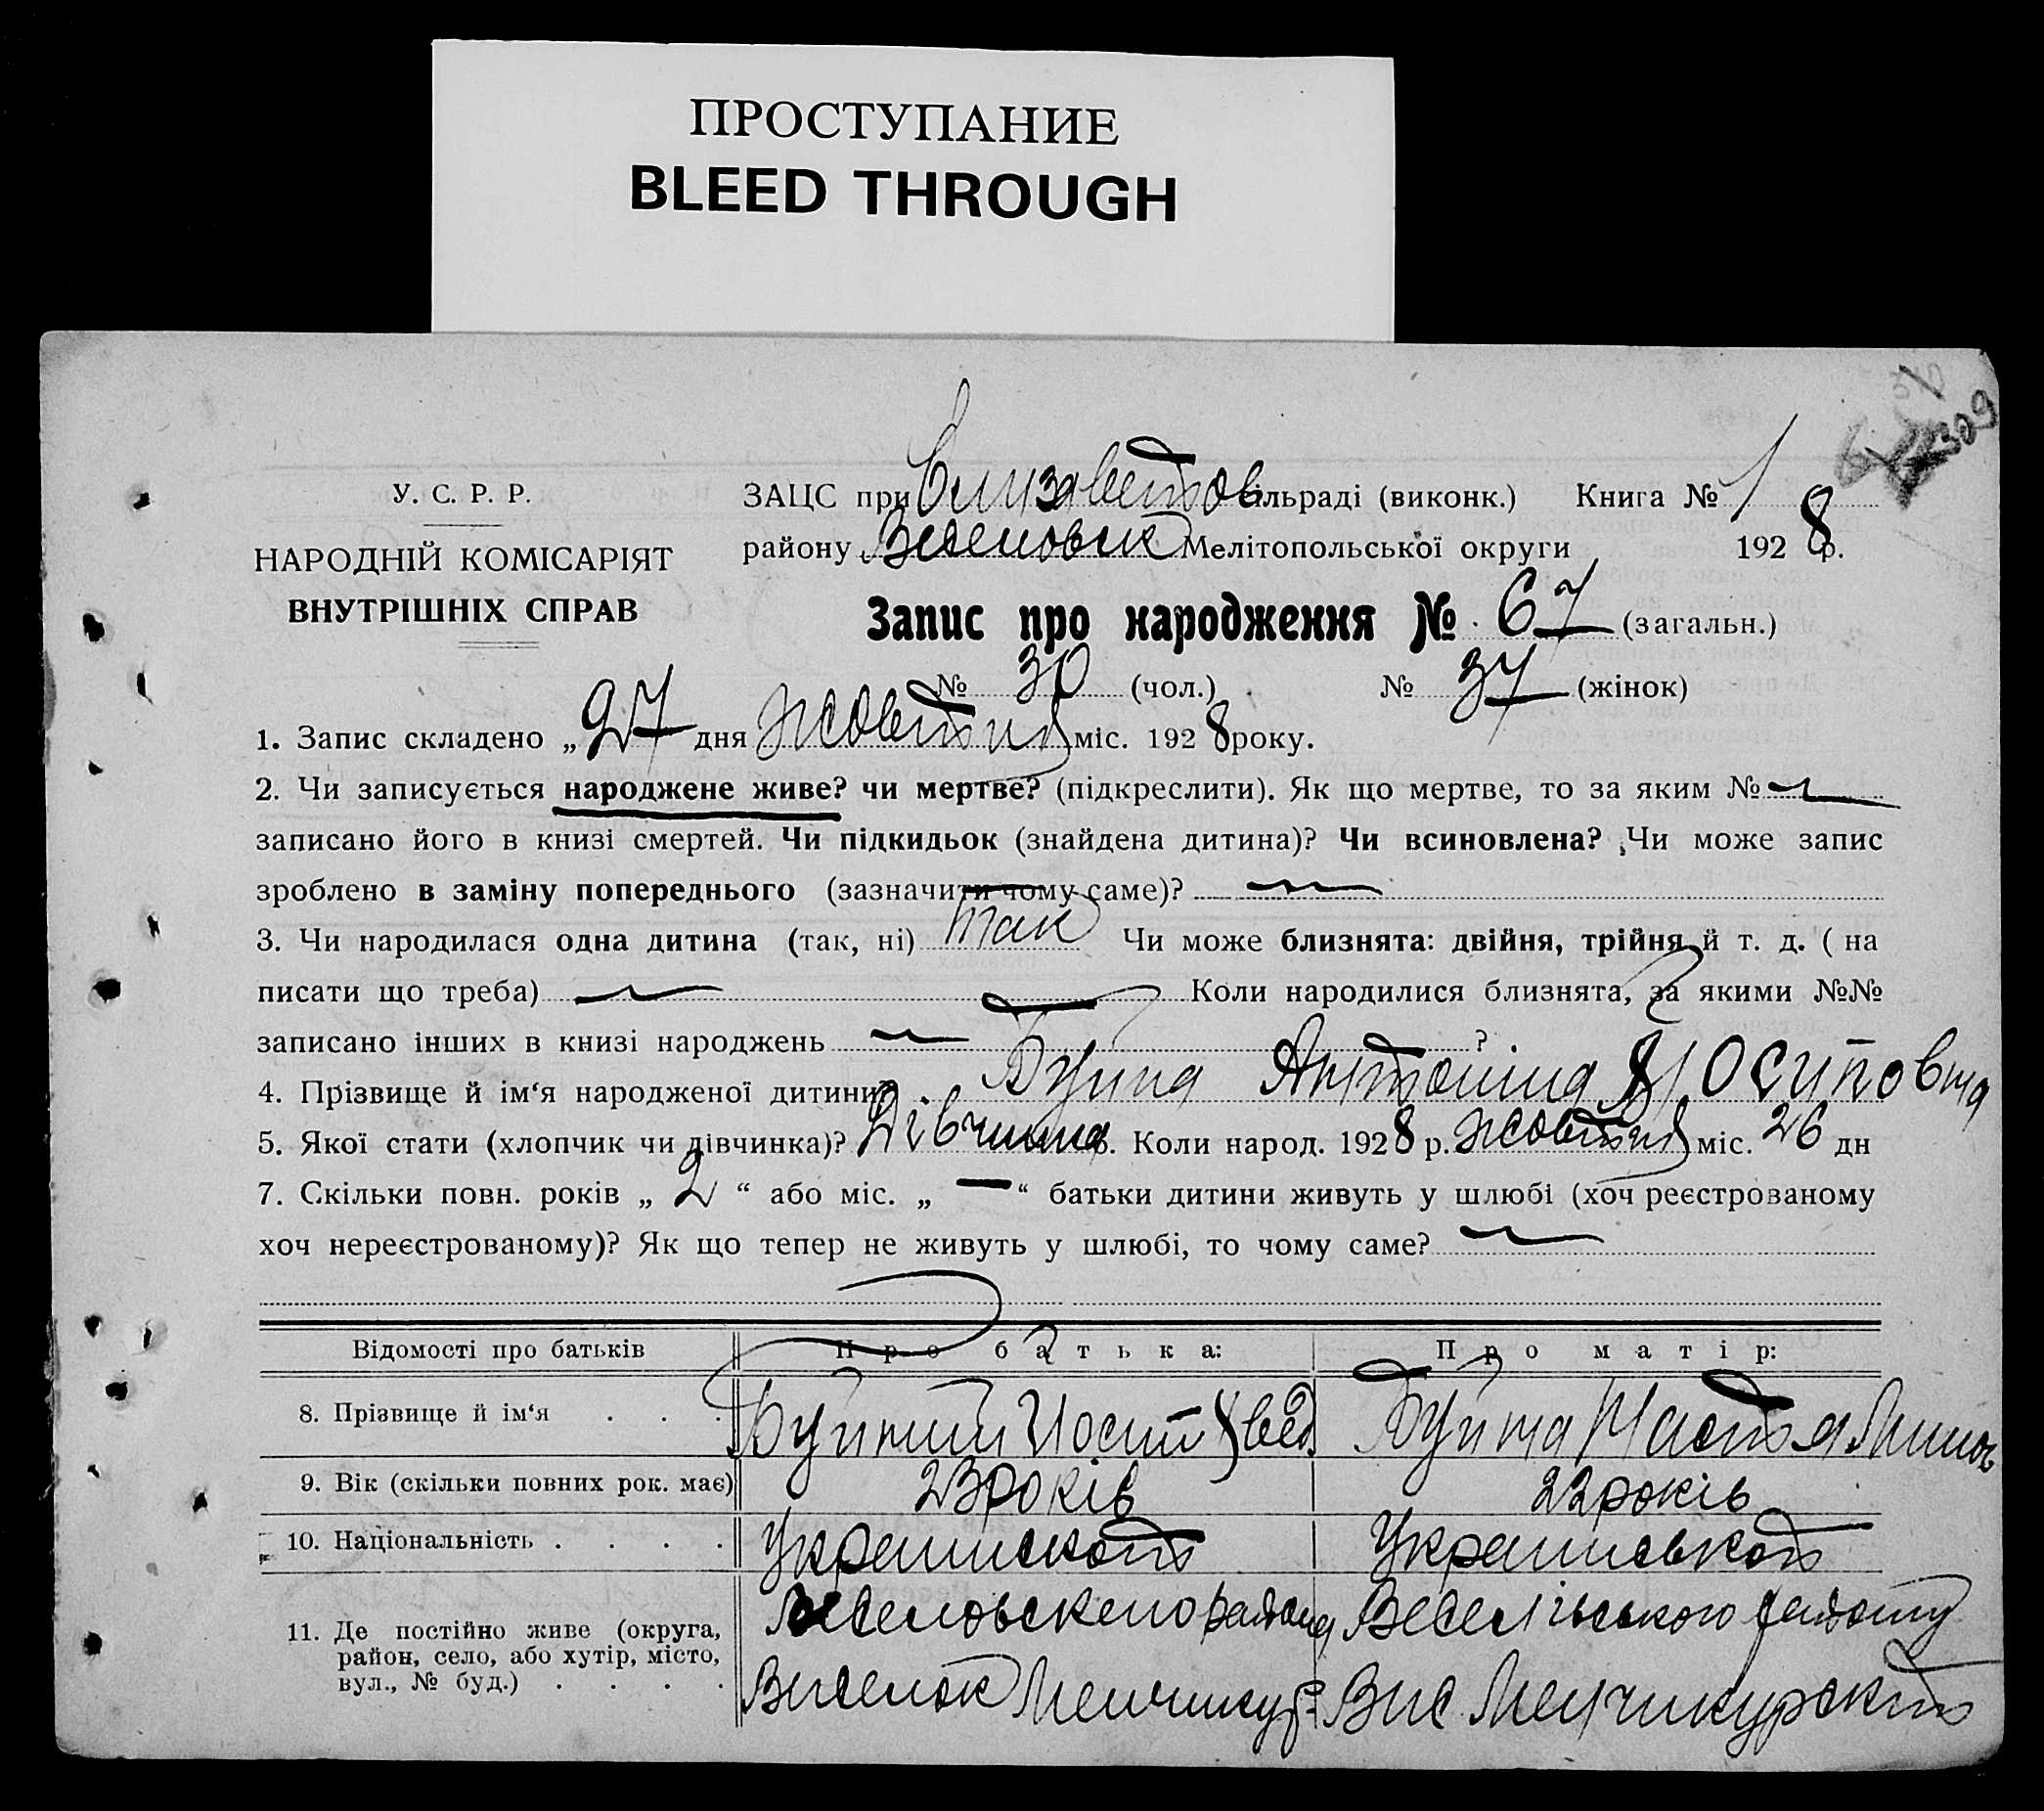 ПРОСТУПАНИЕ
BLEED THROUGH
309
У. С. Р. Р.
НАРОДНІЙ КОМІСАРІЯТ
ВНУТРІШНІХ СПРАВ
ЗАЦС при Єлизаветов сільраді (виконк.) Книга № 1
району Веселовськ Мелітопольської округи 1928 р.
Запис про народження № 67 (загальн.)
№ 30 (чол.) № 37 (жінок)
1. Запис складено „27 дня жовтня міс. 1928 року.
2. Чи записується народжене живе? чи мертве? (підкреслити). Як що мертве, то за яким № —
записано його в книзі смертей. Чи підкидьок (знайдена дитина)? Чи всиновлена? Чи може запис
зроблено в заміну попереднього (зазначити чому саме)? —
3. Чи народилася одна дитина (так, ні) так Чи може близнята: двійня, трійня й т. д. ( на
писати що треба) — Коли народилися близнята, за якими №№
записано інших в книзі народжень — ?
4. Прізвище й ім‘я народженої дитини Буйна Антоніна Йосиповна
5. Якої стати (хлопчик чи дівчинка)? Дівчина 6. Коли народ. 1928 р. жовтня міс. 26 дн
7. Скільки повн. років „ 2 “ або міс. „ — “ батьки дитини живуть у шлюбі (хоч реєстрованому
хоч нереєстрованому)? Як що тепер не живуть у шлюбі, то чому саме? —
Відомості про батьків Про батька: Про матір:
8. Прізвище й ім‘я . . . Буйний Йосип Буйна Настя
9. Вік (скільки повних рок. має) 23 років 22 років
10. Національність . . . . Украинскои Украинськои
11. Де постійно живе (округа, район, село, або хутір, місто, вул., № буд.) . . . . Веселовского района Веселівського району
Виселок Менчикур. Вис Менчикурский